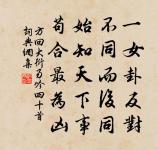 一女卦反對
不同而後同
始知天下事
苟合最為凶
方回大衍易吟四十首
詞典網集